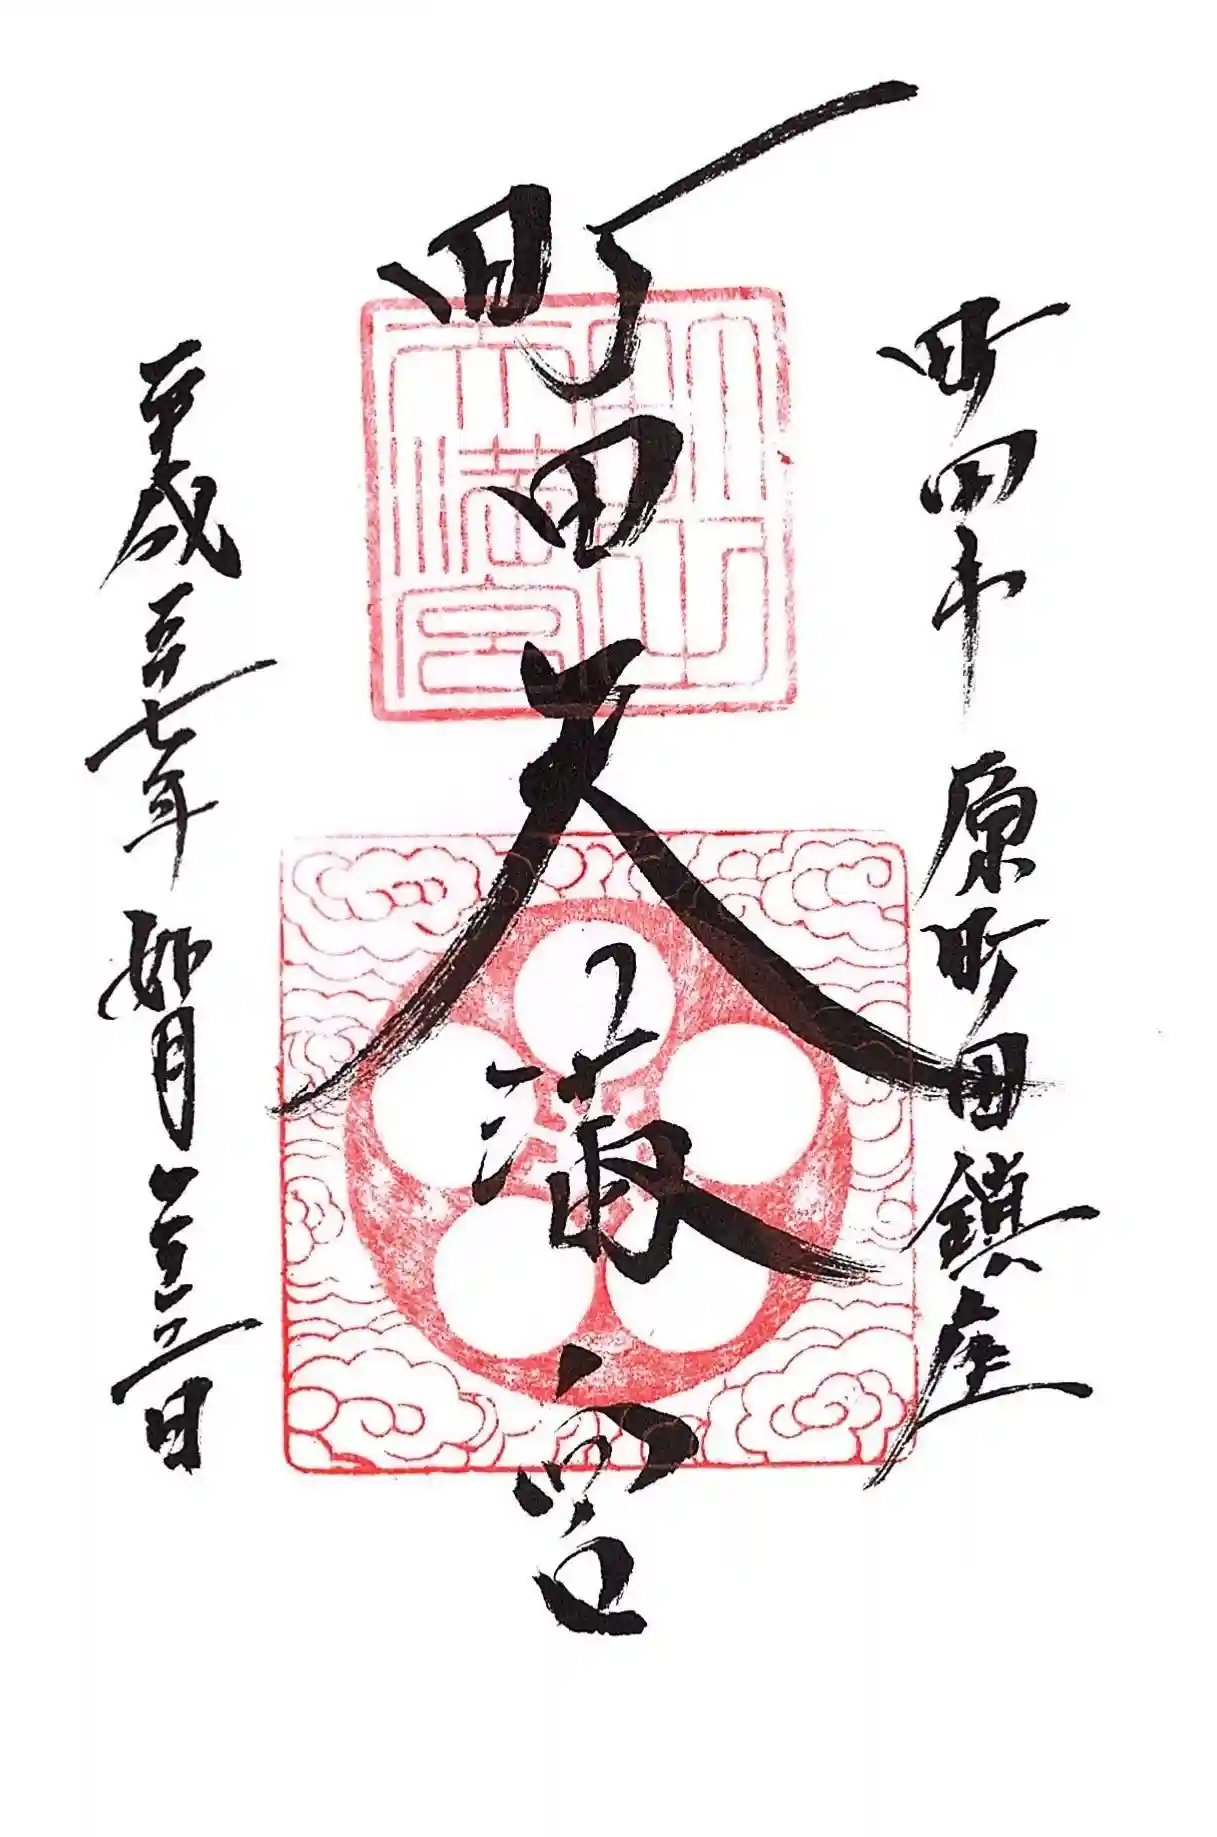 町田市 原町田鎮座
町田天満宮
天満宮
平成二十七年 如月 二十三日